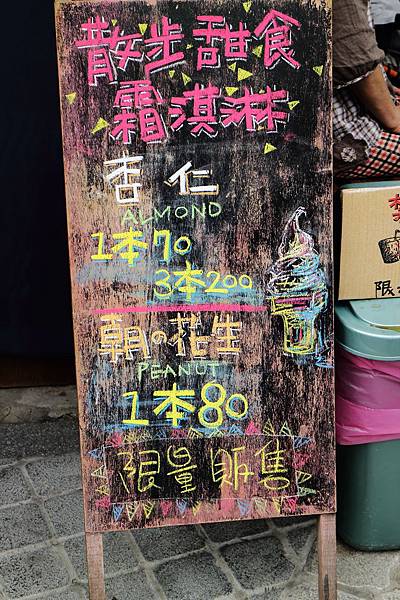 散歩甜食
霜淇淋
杏仁
ALMOND
1本70
3本200
朝の花生
PEANUT
1本80
限量販售
限